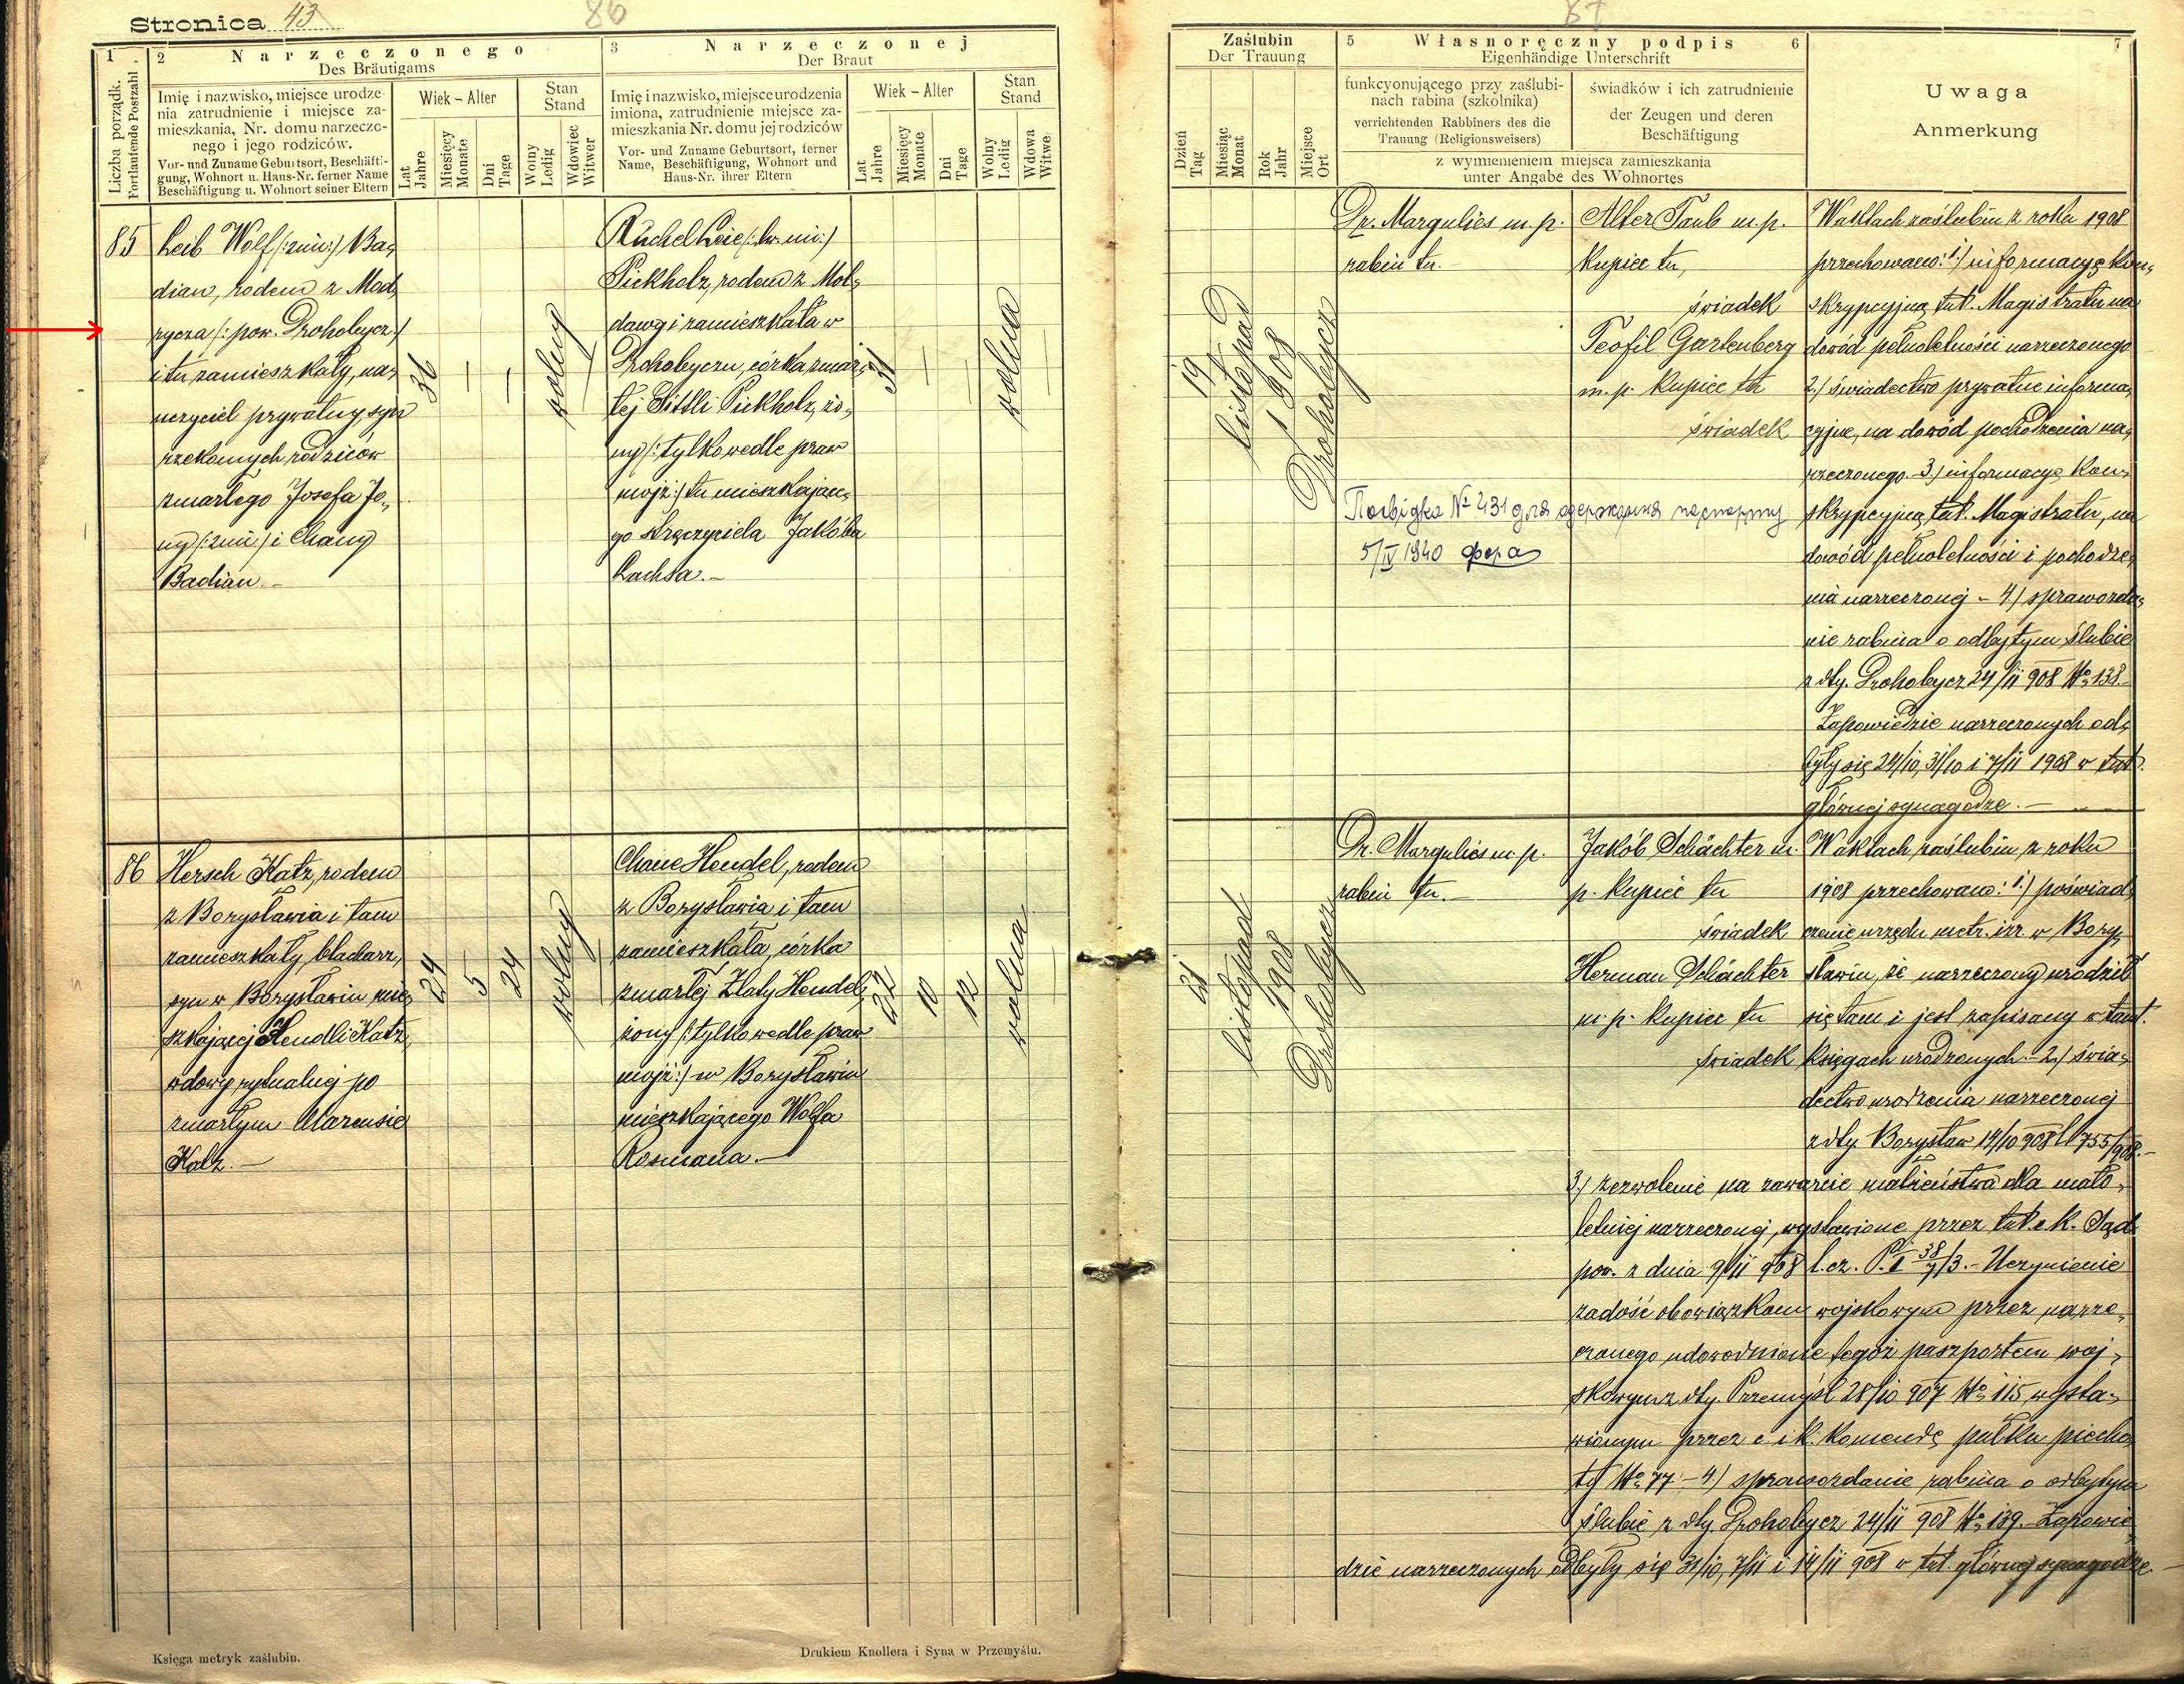 Stronica 43
86
87
1
Liczba porządk.
Fortlaufende Postzahl
2 Narzeczonego
Des Bräutigams
Imię i nazwisko, miejsce urodze-
nia zatrudnienie i miejsce za-
mieszkania, Nr. domu narzeczo-
nego i jego rodziców.
Vor- und Zuname Geburtsort, Beschäfti-
gung, Wohnort u. Haus-Nr. ferner Name
Beschäftigung u. Wohnort seiner Eltern
Wiek – Alter
Lat
Jahre
Miesięcy
Monate
Dni
Tage
Stan
Stand
Wolny
Ledig
Wdowiec
Witwer
3 Narzeczonej
Der Braut
Imię i nazwisko, miejsce urodzenia
imiona, zatrudnienie miejsce za-
mieszkania Nr. domu jej rodziców
Vor- und Zuname Geburtsort, ferner
Name, Beschäftigung, Wohnort und
Haus-Nr. ihrer Eltern
Wiek – Alter
Lat
Jahre
Miesięcy
Monate
Dni
Tage
Stan
Stand
Wolny
Ledig
Wdowa
Witwe
Zaślubin
Der Trauung
Dzień
Tag
Miesiąc
Monat
Rok
Jahr
Miejsce
Ort
5 Własnoręczny podpis 6
Eigenhändige Unterschrift
funkcyonującego przy zaślubi-
nach rabina (szkolnika)
verrichtenden Rabbiners des die
Trauung (Religionsweisers)
świadków i ich zatrudnienie
der Zeugen und deren
Beschäftigung
z wymienieniem miejsca zamieszkania
unter Angabe des Wohnortes
7
Uwaga
Anmerkung
85
Leib Wolf (: zim :) Ba-
dian, rodem z Mod-
rycza (: pow. Drohobycz :)
i tu zamieszkały, na-
uczyciel prywatny, syn
rzekomych rodziców
zmarłego Josefa Jo-
ny (: zim :) i Chany
Badian. –
36 — —
wolny
Ruchel Leie (: dw. im :)
Pickholz, rodem z Moł-
dawy i zamieszkała w
Drohobyczu, córka zmar-
łej Sittli Pickholz, żo-
ny (: tylko wedle praw
mojż :) tu mieszkające-
go stręczyciela Jakóba
Lachsa. –
31 — —
wolna
19
listopad
1908
Drohobycz
Dr. Margulies m. p.
rabin tu. –
Alter Taub m. p.
kupiec tu,
świadek
Teofil Gartenberg
m. p. kupiec tu
świadek
Посвідка № 431 для одержання паспорту
5/IV 1940
W aktach zaślubin z roku 1908
przechowano: 1.) informacyę kon-
skrypcyjną tut. Magistratu na
dowód pełnoletności narzeczonego
2.) świadectwo prywatne informa-
cyjne, na dowód pochodzenia na-
rzeczonego. 3.) informacyę kon-
skrypcyjną tut. Magistratu, na
dowód pełnoletności i pochodze-
nia narzeczonej – 4.) sprawozda-
nie rabina o odbytym ślubie
z dty. Drohobycz 24/11 908 No 138.
Zapowiedzie narzeczonych od-
były się 24/10, 31/10 i 7/11 1908 w tut.
głównej synagodze. –
86
Hersch Katz, rodem
z Borysławia i tam
zamieszkały, blacharz,
syn w Borysławiu mie-
szkającej Hendli Katz,
wdowy rytualnej po
zmarłym Marcusie
Katz. –
24 5 24
wolny
Chane Hendel, rodem
z Borysławia i tam
zamieszkała, córka
zmarłej Zlaty Hendel,
żony (: tylko wedle praw
mojż :) w Borysławiu
mieszkającego Wolfa
Rosmana. –
22 10 12
wolna
21
listopad
1908
Drohobycz
Dr. Margulies m. p.
rabin tu. –
Jakób Schächter m.
p. kupiec tu
świadek
Herman Schächter
m. p. kupiec tu
świadek
W aktach zaślubin z roku
1908 przechowano: 1.) poświad-
czenie urzędu metr. izr. w Bory-
sławiu, że narzeczony urodził
się tam i jest zapisany w tamt.
księgach urodzonych – 2.) świa-
dectwo urodzenia narzeczonej
z dty. Borysław 14/10 908 l. 755/908. –
3.) zezwolenie na zawarcie małżeństwa dla mało-
letniej narzeczonej, wystawione przez tut. c. k. Sąd
pow. z dnia 9/11 908 l. cz. P. I 38/7/3. – Uczynienie
zadość obowiązkom wojskowym przez narze-
czonego udowodnione tegoż paszportem woj-
skowym z dty. Przemyśl 28/10 907 No 115, wysta-
wionym przez c. i k. Komendę pułku piecho-
ty No 77 – 4.) sprawozdanie rabina o odbytym
ślubie z dty. Drohobycz 24/11 908 No 139. – Zapowie-
dzie narzeczonych odbyły się 31/10, 7/11 i 14/11 908 w tut. głównej synagodze. –
Księga metryk zaślubin.
Drukiem Knollera i Syna w Przemyślu.